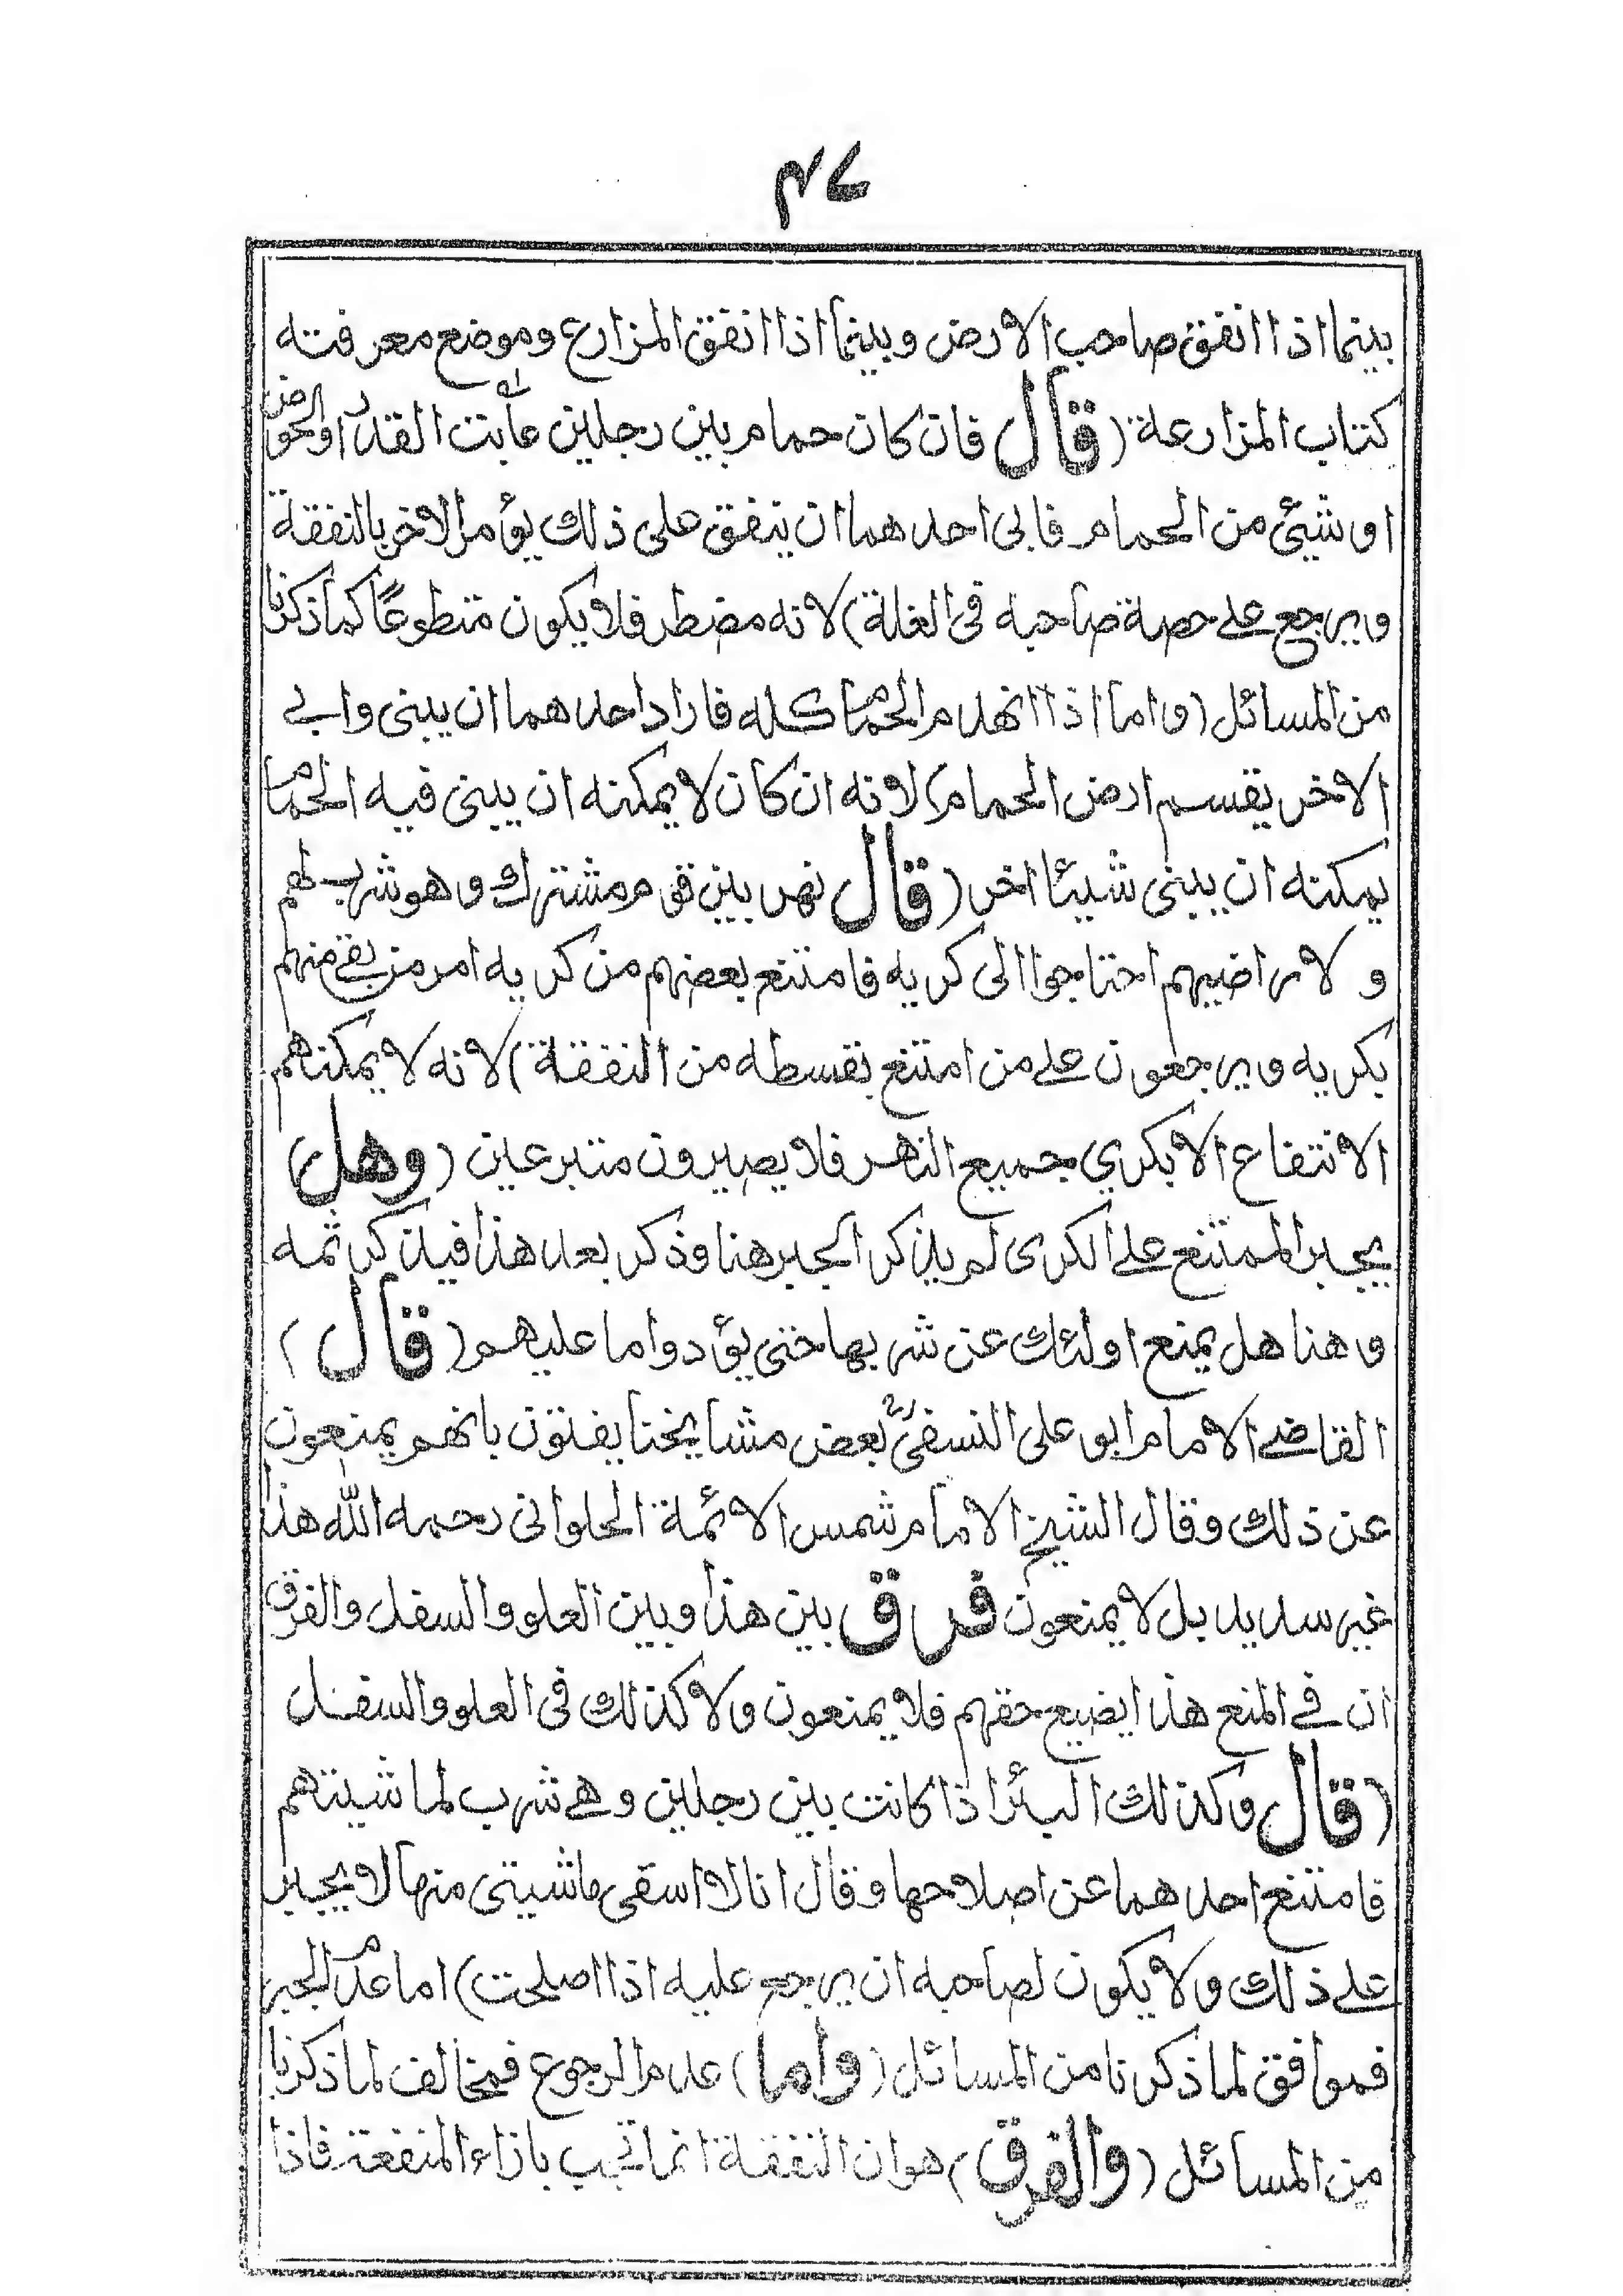 ٤٧
بينما اذا انفق صاحب الارض وبينما اذا انفق المزارع وموضع معرفته
كتاب المزارعة (قال فان كان حمام بين رجلين عابت القدر او الحوض
او شيئ من الحمام فابى احدهما ان ينفق على ذلك يؤمر الاخر بالنفقة
ويرجع على حصة صاحبه فى الغلة) لانه مضطر فلا يكون متطوعًا كما ذكرنا
من المسائل (واما اذا انهدم الحمام كله فاراد احدهما ان يبنى وابى
الاخر يقسم ارض الحمام) لانه ان كان لا يمكنه ان يبنى فيه الحمام
يمكنه ان يبنى شيئا اخر (قال نهر بين قوم مشترك وهو شرب لهم
ولاراضيهم احتاجوا الى كريه فامتنع بعضهم من كريه امر من بقى منهم
بكريه ويرجعون على من امتنع بقسطه من النفقة) لانه لا يمكنهم
الانتفاع الا بكري جميع النهر فلا يصيرون متبرعين (وهل)
يجبر الممتنع على الكرى لم يذكر الجبر هنا وذكر بعد هذا فيذكر ثمه
وهنا هل يمنع اولئك عن شربها حتى يؤدوا ما عليهم (قال)
القاضى الامام ابو على النسفىؒ بعض مشايخنا يفتون بانهم يمنعون
عن ذلك وقال الشيخ الامام شمس الائمة الحلوانى رحمه الله هذا
غير سديد بل لا يمنعون فرق بين هذا وبين العلو والسفل والفرق
ان فى المنع هذا يضيع حقهم فلا يمنعون ولا كذلك فى العلو والسفل
(قال وكذلك البئر اذا كانت بين رجلين وهى شرب لماشيتهم
فامتنع احدهما عن اصلاحها وقال انا لا اسقى ماشيتى منها لا يجبر
على ذلك ولا يكون لصاحبه ان يرجع عليه اذا اصلحت) اما عدم الجبر
فموافق لما ذكرنا من المسائل (واما) عدم الرجوع فمخالف لما ذكرنا
من المسائل (والفرق) هو ان النفقة انما تجب بازاء المنفعة فاذا